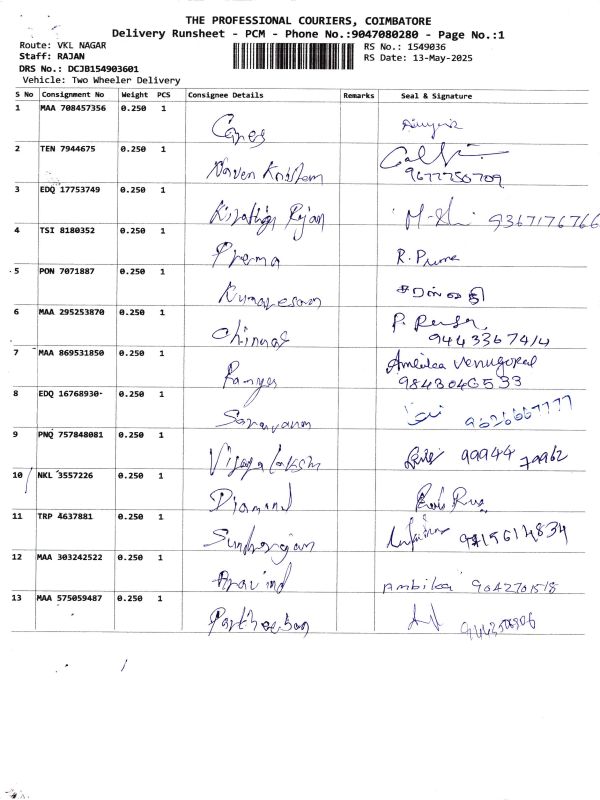 THE PROFESSIONAL COURIERS, COIMBATORE
Delivery Runsheet - PCM - Phone No.:9047080280 - Page No.:1
Route: VKL NAGAR
RS No.: 1549036
Staff: RAJAN
RS Date: 13-May-2025
DRS No.: DCJB154903601
Vehicle: Two Wheeler Delivery
S No Consignment No Weight PCS Consignee Details Remarks Seal & Signature
1 MAA 708457356 0.250 1
2 TEN 7944675 0.250 1 9677750709
3 EDQ 17753749 0.250 1 Rajan 9367176766
4 TSI 8180352 0.250 1 Prema R. Prema
5 PON 7071887 0.250 1 Kumaresan
6 MAA 295253870 0.250 1 P.
9443367414
7 MAA 869531850 0.250 1 Ramya Ambika Venugopal
9843046533
8 EDQ 16768930 0.250 1 Saravanan 9626667777
9 PNQ 757848081 0.250 1 Vijaya Lakshmi 99944 79962
10 NKL 3557226 0.250 1 Diamond
11 TRP 4637881 0.250 1 Sundharajan
12 MAA 303242522 0.250 1 Aravind Ambika 9042701518
13 MAA 575059487 0.250 1 Parthiban